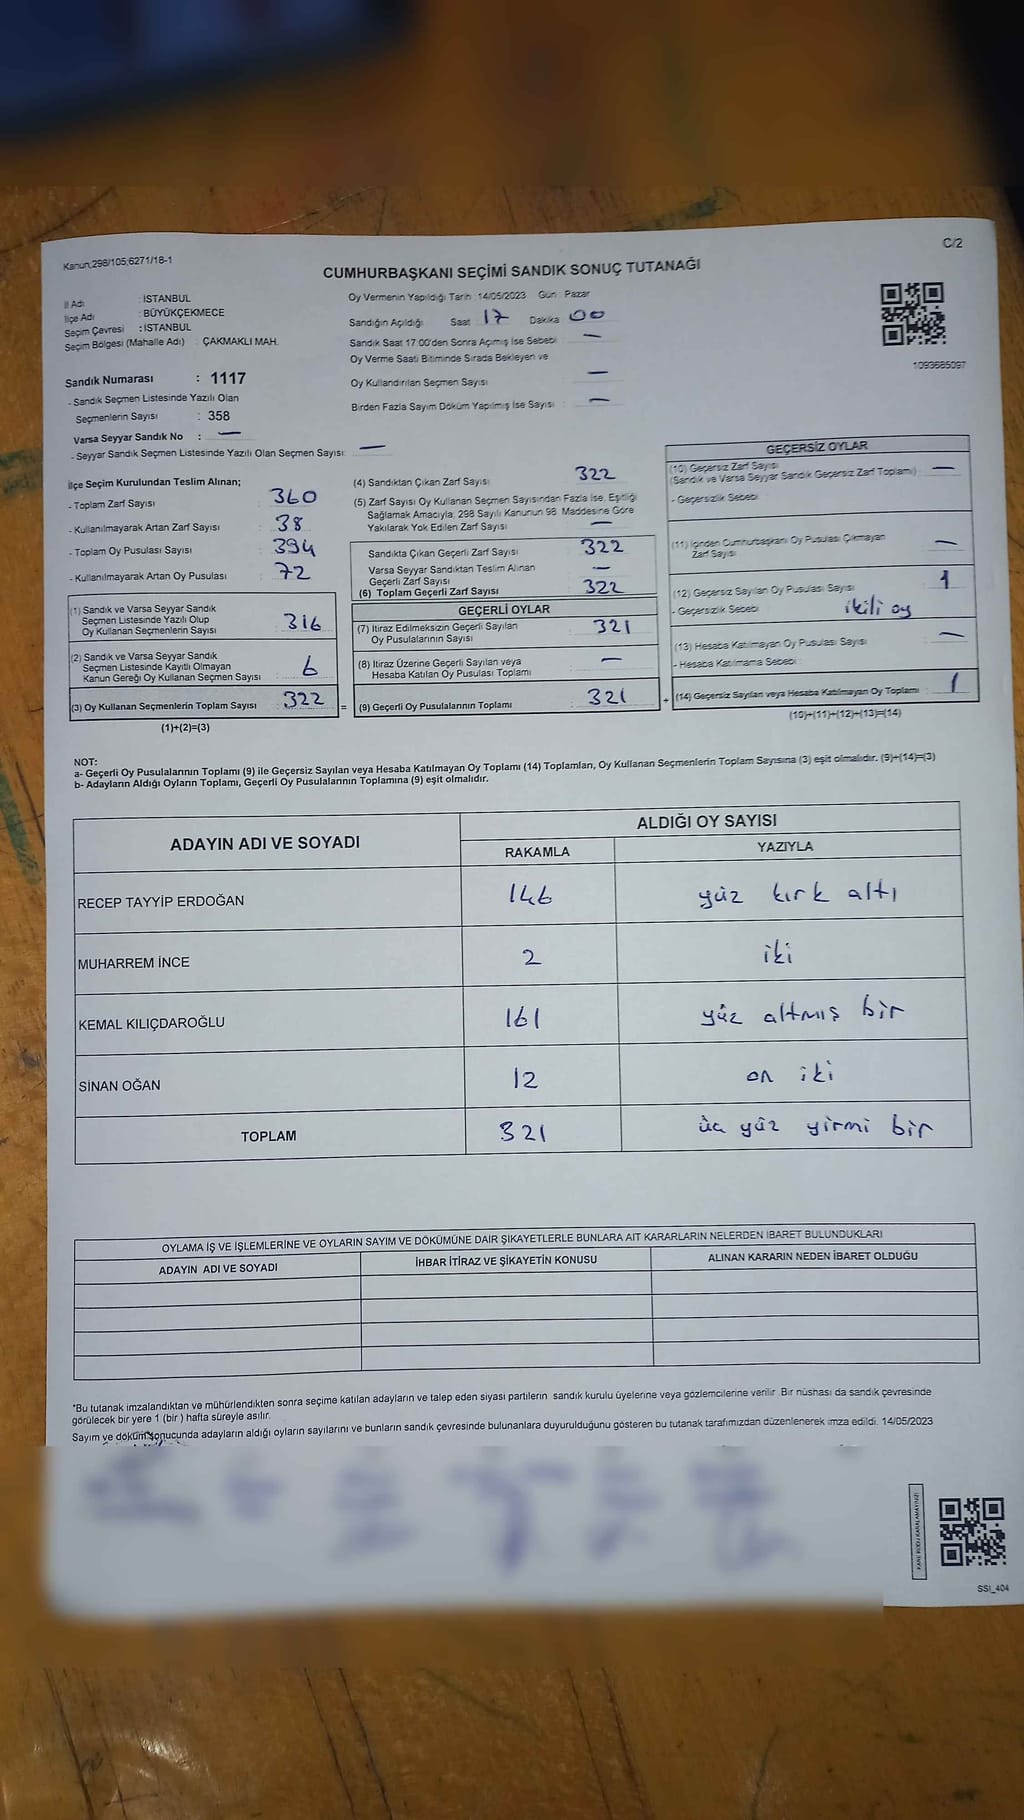 C/2
Kanun;298/105;6271/18-1
CUMHURBAŞKANI SEÇİMİ SANDIK SONUÇ TUTANAĞI
İl Adı : İSTANBUL
İlçe Adı : BÜYÜKÇEKMECE
Seçim Çevresi : İSTANBUL
Seçim Bölgesi (Mahalle Adı) : ÇAKMAKLI MAH.
Sandık Numarası : 1117
- Sandık Seçmen Listesinde Yazılı Olan
Seçmenlerin Sayısı : 358
Varsa Seyyar Sandık No : —
- Seyyar Sandık Seçmen Listesinde Yazılı Olan Seçmen Sayısı: —
Oy Vermenin Yapıldığı Tarih: 14/05/2023 Gün: Pazar
Sandığın Açıldığı Saat 17 Dakika 00
Sandık Saat 17:00'den Sonra Açımış İse Sebebi : —
Oy Verme Saati Bitiminde Sırada Bekleyen ve
Oy Kullandırılan Seçmen Sayısı : —
Birden Fazla Sayım Döküm Yapılmış İse Sayısı : —
1093685097
İlçe Seçim Kurulundan Teslim Alınan;
- Toplam Zarf Sayısı : 360
- Kullanılmayarak Artan Zarf Sayısı : 38
- Toplam Oy Pusulası Sayısı : 394
- Kullanılmayarak Artan Oy Pusulası : 72
(1) Sandık ve Varsa Seyyar Sandık
Seçmen Listesinde Yazılı Olup
Oy Kullanan Seçmenlerin Sayısı : 316
(2) Sandık ve Varsa Seyyar Sandık
Seçmen Listesinde Kayıtlı Olmayan
Kanun Gereği Oy Kullanan Seçmen Sayısı : 6
(3) Oy Kullanan Seçmenlerin Toplam Sayısı : 322
(1)+(2)=(3)
=
(4) Sandıktan Çıkan Zarf Sayısı : 322
(5) Zarf Sayısı Oy Kullanan Seçmen Sayısından Fazla İse, Eşitliği
Sağlamak Amacıyla; 298 Sayılı Kanunun 98. Maddesine Göre
Yakılarak Yok Edilen Zarf Sayısı : —
Sandıkta Çıkan Geçerli Zarf Sayısı : 322
Varsa Seyyar Sandıktan Teslim Alınan
Geçerli Zarf Sayısı : —
(6) Toplam Geçerli Zarf Sayısı : 322
GEÇERLİ OYLAR
(7) İtiraz Edilmeksizin Geçerli Sayılan
Oy Pusulalarının Sayısı : 321
(8) İtiraz Üzerine Geçerli Sayılan veya
Hesaba Katılan Oy Pusulası Toplamı : —
(9) Geçerli Oy Pusulalarının Toplamı : 321
+
GEÇERSİZ OYLAR
(10) Geçersiz Zarf Sayısı : —
(Sandık ve Varsa Seyyar Sandık Geçersiz Zarf Toplamı)
- Geçersizlik Sebebi :
(11) İçinden Cumhurbaşkanı Oy Pusulası Çıkmayan
Zarf Sayısı : —
(12) Geçersiz Sayılan Oy Pusulası Sayısı : 1
- Geçersizlik Sebebi : ikili oy
(13) Hesaba Katılmayan Oy Pusulası Sayısı : —
- Hesaba Katılmama Sebebi :
(14) Geçersiz Sayılan veya Hesaba Katılmayan Oy Toplamı : 1
(10)+(11)+(12)+(13)=(14)
NOT:
a- Geçerli Oy Pusulalarının Toplamı (9) ile Geçersiz Sayılan veya Hesaba Katılmayan Oy Toplamı (14) Toplamları, Oy Kullanan Seçmenlerin Toplam Sayısına (3) eşit olmalıdır. (9)+(14)=(3)
b- Adayların Aldığı Oyların Toplamı, Geçerli Oy Pusulalarının Toplamına (9) eşit olmalıdır.
ADAYIN ADI VE SOYADI
ALDIĞI OY SAYISI
RAKAMLA YAZIYLA
RECEP TAYYİP ERDOĞAN 146 yüz kırk altı
MUHARREM İNCE 2 iki
KEMAL KILIÇDAROĞLU 161 yüz altmış bir
SİNAN OĞAN 12 on iki
TOPLAM 321 üç yüz yirmi bir
OYLAMA İŞ VE İŞLEMLERİNE VE OYLARIN SAYIM VE DÖKÜMÜNE DAİR ŞİKAYETLERLE BUNLARA AİT KARARLARIN NELERDEN İBARET BULUNDUKLARI
ADAYIN ADI VE SOYADI İHBAR İTİRAZ VE ŞİKAYETİN KONUSU ALINAN KARARIN NEDEN İBARET OLDUĞU
*Bu tutanak imzalandıktan ve mühürlendikten sonra seçime katılan adayların ve talep eden siyasi partilerin sandık kurulu üyelerine veya gözlemcilerine verilir. Bir nüshası da sandık çevresinde
görülecek bir yere 1 (bir) hafta süreyle asılır.
Sayım ve döküm sonucunda adayların aldığı oyların sayılarını ve bunların sandık çevresinde bulunanlara duyurulduğunu gösteren bu tutanak tarafımızdan düzenlenerek imza edildi. 14/05/2023
SSI_404